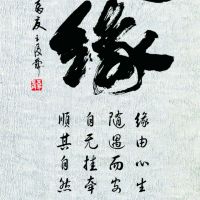 缘
缘由心生
随遇而安
自无挂牵
順其自然